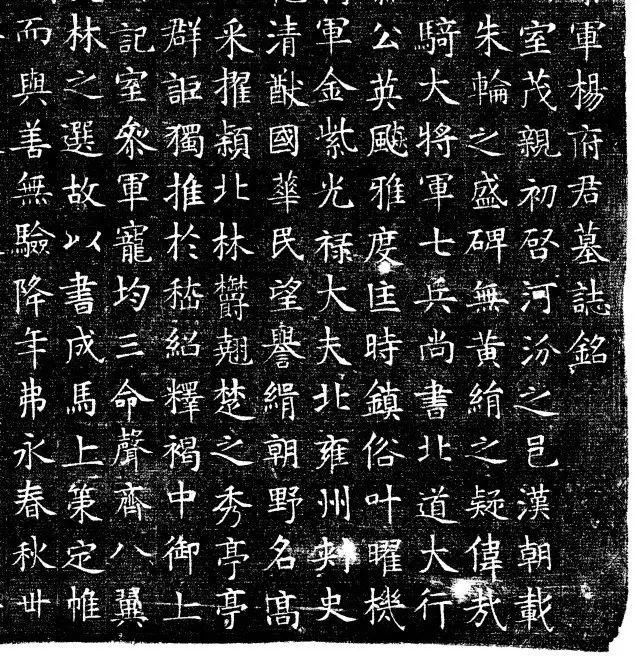 軍楊府君墓誌銘
室茂親初啓河汾之邑漢朝載
朱輪之盛碑無黃絹之疑偉哉
騎大將軍七兵尚書北道大行
公英飈雅度匡時鎮俗叶曜機
軍金紫光祿大夫北雍州刾史
清猷國華民望譽緝朝野名高
采擢潁北林欝翹楚之秀亭亭
群詎獨推於嵇紹釋褐中御上
記室叅軍寵均三命聲齊八翼
林之選故以書成馬上策定帷
而與善無驗降年弗永春秋丗